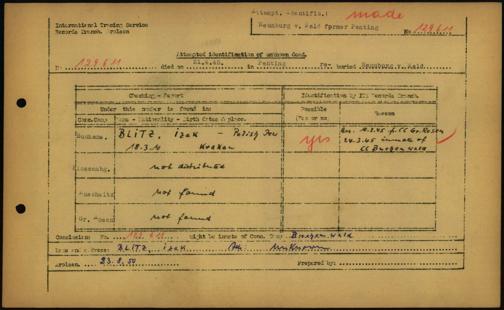 International Tracing Service
Records Branch. Arolsen
Attempt. Identific.: made
Neunburg v. Wald former Penting
No 129611
Attempted identification of unknown dead.
No 129611 died on 21.4.45. in Penting Neunburg v. Wald.
Checking - Report
Identification by ITS Records Branch.
Under this number is found in:
Possible
Yes or no.
Reason
Conc.Camp Name - Nationality - Birth date & place.
Buchenw. BLITZ, Izak - Polish Jew
18.3.10 Krakau
yes
10.2.45 f. CC Gr. Rosen
24.3.45 inmate of
CC Buchenwald
Flossenbg. not distributed
Auschwitz not found
Gr. Rosen not found
Conclusion No. 129611 might be inmate of Conc. Camp Buchenwald
BLITZ, Izak. Unknown
Arolsen, 23.8.50 Prepared by: